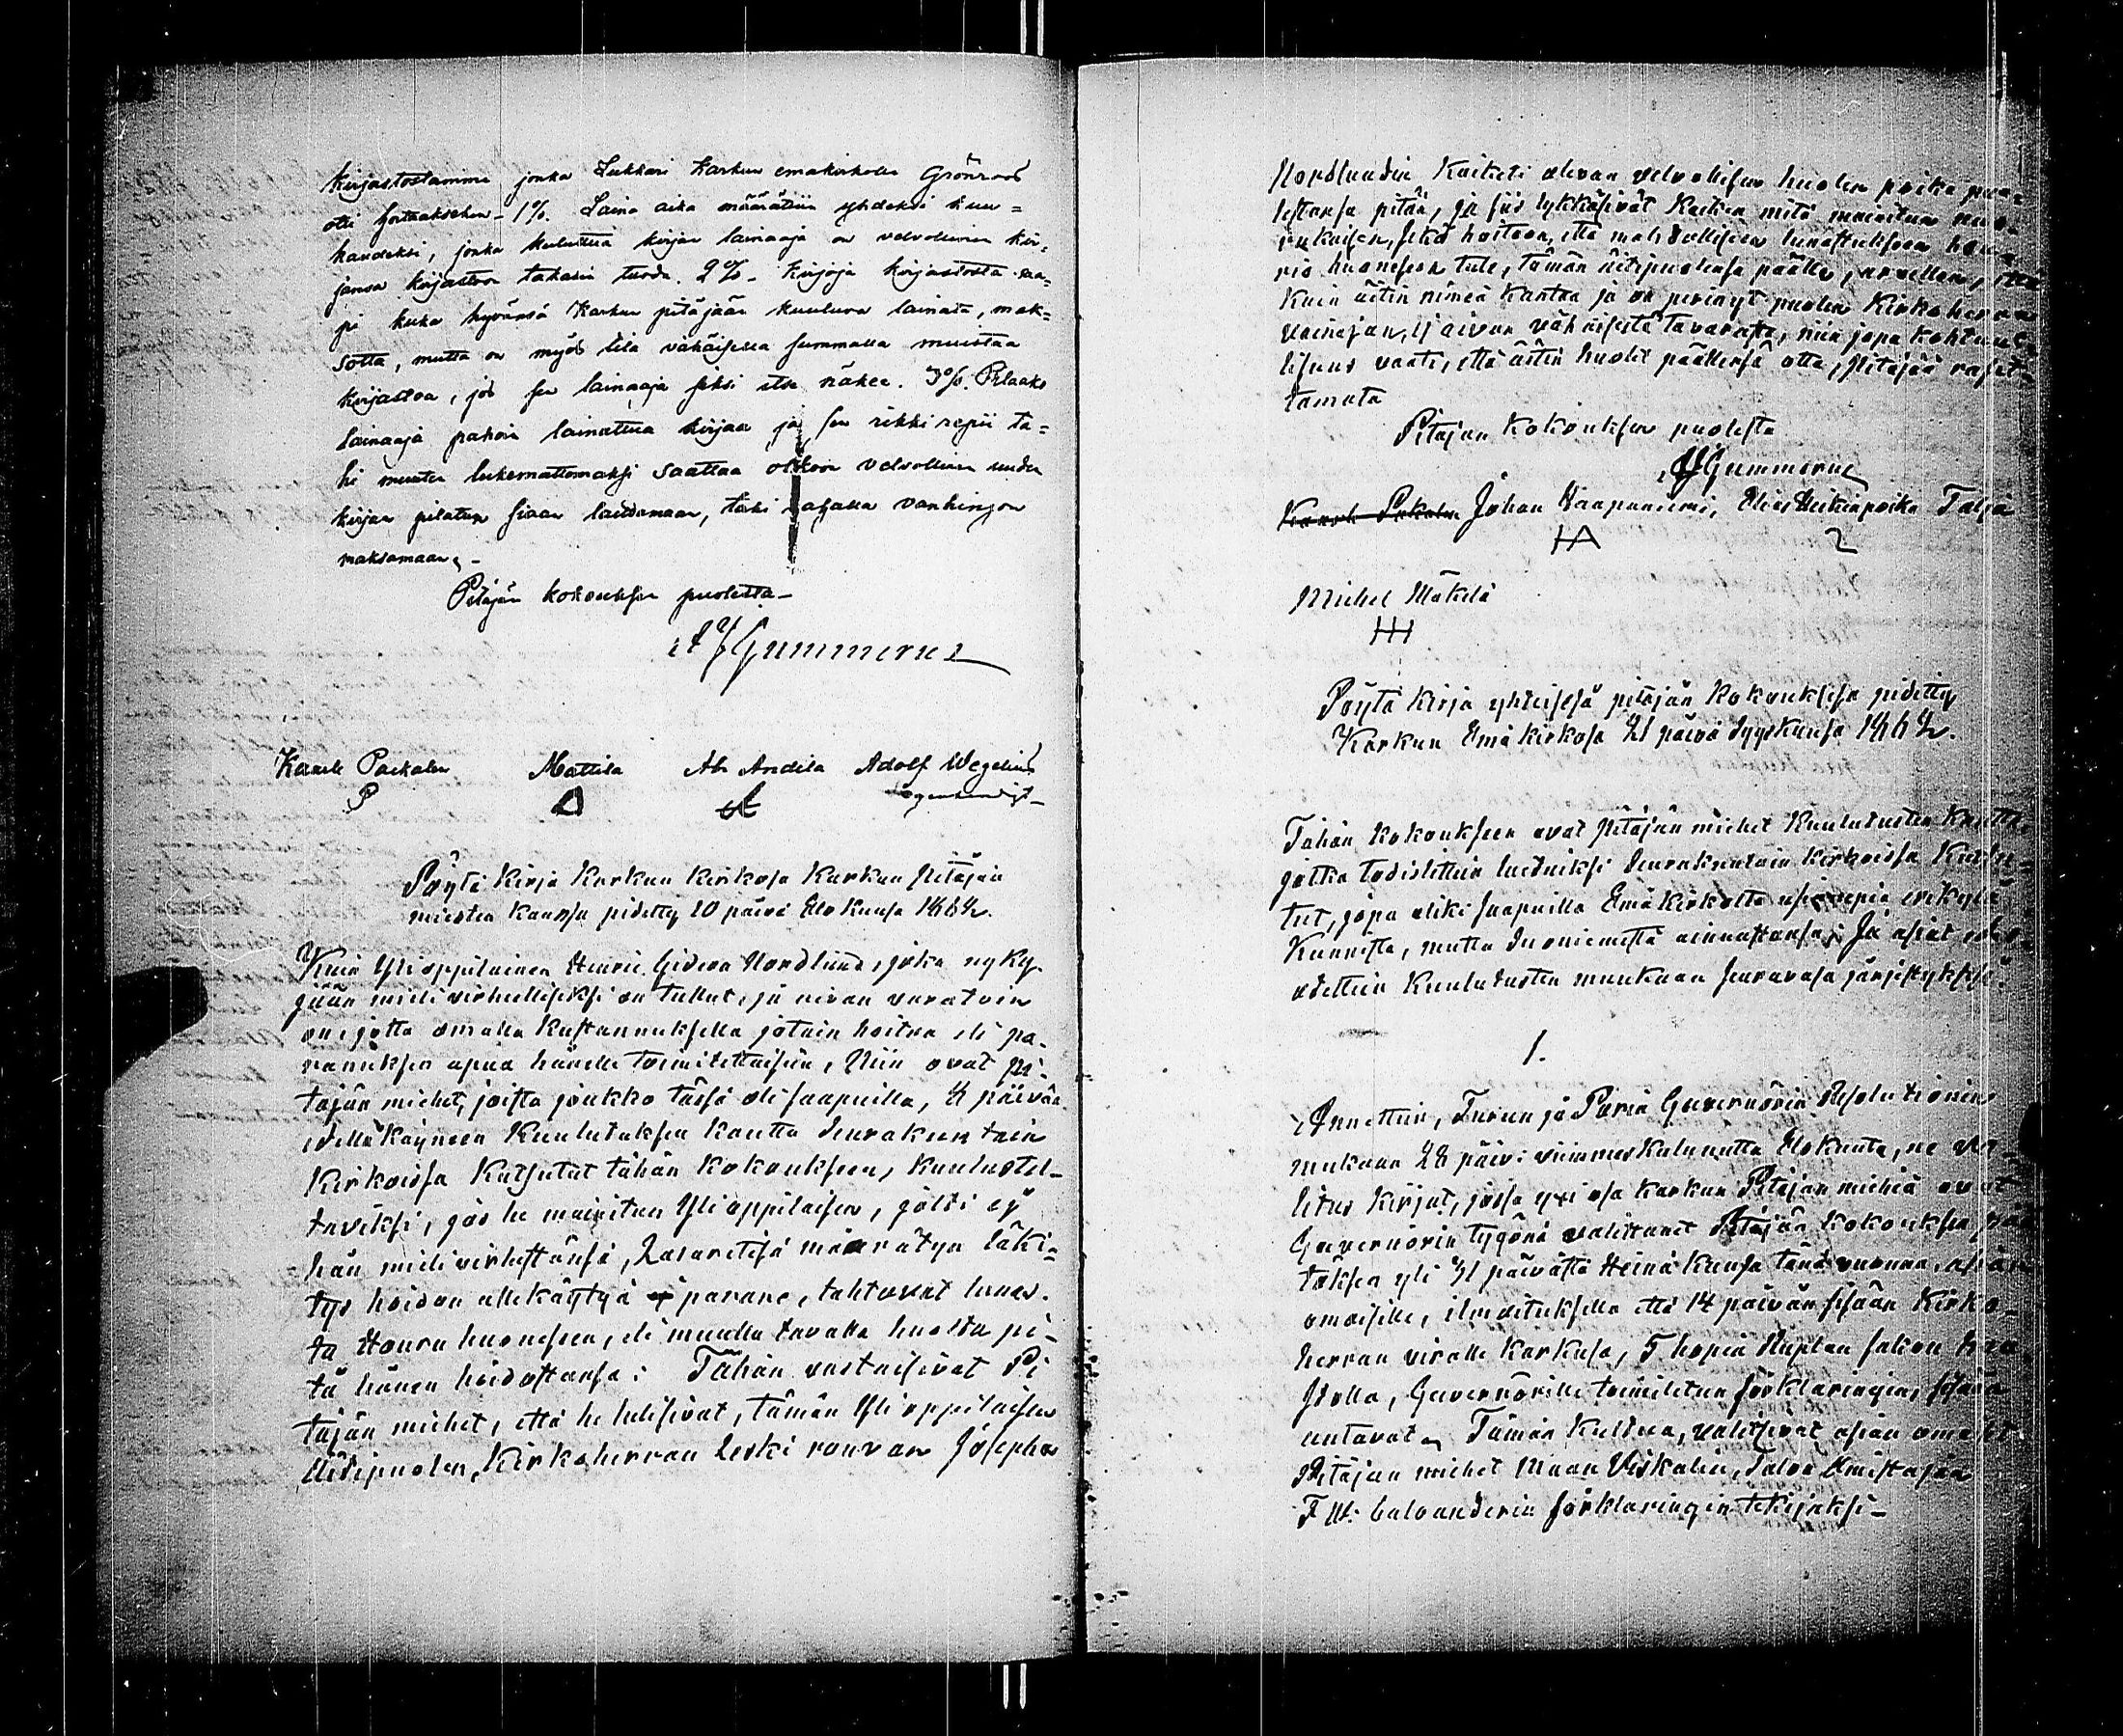 kirjastostamme jonka Lukkari Karkun emäkirkolla Grönroos
otti hoitaaksehen – 1%. Laina aika määrättiin yhdeksi kuu=
kaudeksi, jonka kuluttua kirjan lainaaja on velvollinen kir=
jansa kirjastoon takasin tuoda. 2%– Kirjoja kirjastosta saa=
pi kuka hyvänsä Karkun pitäjään kuuluva lainata, mak=
sotta, mutta on myös tila vähäisellä summalla muistaa
kirjastoa, jos sen lainaaja siksi itse näkee. 3%. Pilaako
lainaaja pahoin lainattua kirjaa ja sen rikki repii ta=
hi muuten lukemattomaksi saattaa olkoon velvollinen uuden
kirjan pilatun siaan laittamaan, tahi rahalla vahingon
maksamaan,–
Pitäjän kokouksen puolesta–
Gummerus
Kaarle Paikalan Mattila Ab. Andila Adolf Wegelius
P A
Pöytä Kirja Karkun Kirkosa Karkun Pitäjän
miesten kanssa pidetty 20 päivä Elokuusa 1864.
Kuin Yli oppilainen Henric Gideon Nordlund, joka nyky-
jään mieli virheelliseksi on tullut, ja aivan varatoin
on, jotta omalla Kustannuksella jotain hoitoa eli pa-
rannuksen apua hänelle toimitettaisiin, Niin ovat Pi-
täjän miehet, joista joukko tässä oli saapuilla, 4 päivää
edellä käyneen Kuulutuksen kautta Seurakuntain
Kirkoissa Kutsutut tähän Kokoukseen, Kuulustel-
taviksi, jos he mainitun Yli oppilaisen, jollei ej
hän mieli virhestänsä, Lasaretisa määrätyn läki-
tys hoidon alle käytyä parane, tahtovat lunas-
ta Houru huoneseen, eli muulla tavalla huolta pi-
tä hänen hoidostansa: Tähän vastaisivat Pi
täjän miehet, että he luulisivat, tämän Yli oppilaisen
Äitipuolen, Kirkoherran Leski rouvan Josepha
Nordlundin Kaiketi olevan velvollisen huolen poika puo-
lestansa pitää, ja siis lykkäsivät Kaiken mitä mainitun nuo-
rukaisen, sekä hoitoon, että mahdolliseen lunastukseen hou-
ru huoneseen tule, tämän äitipuolensa päälle, arvellen, että
Kuin äitin nimeä kantaa ja on perinyt puolen Kirkoherra
vainajan, ej aivan vähäisestä tavarasta, niin jopa kohtuul-
lisuus vaati, että äitin huolet päällensä otta, Pitäjää rasit-
tamata
Pitäjän Kokouksen puolesta
Gummerus
Johan Haapaniemi, Elias Heikinpoika Talja
HA 2
Michel Mäkelä
Pöytä Kirja yhteisessä pitäjän Kokouksesa pidetty
Karkun Emä kirkosa 21 päivä Syyskuusa 1864.
Tähän Kokoukseen ovat Pitäjän miehet Kuulutusten Kautta
jotka todistettiin luetuiksi Seurakuntain Kirkoissa Kutsu-
tut, jopa oliki saapuilla Emäkirkolta
Kunnista, mutta Suoniemestä ainoastansa; Ja asiat
otettiin Kuulutusten mukaan seuravasa järjestyksesä
1.
Annettiin, Turun ja Porin Guvernörin Resolutionin
mukaan 28 päivä viimmeskulunutta Elokuuta, ne va-
litus kirjat, jossa yxi osa Karkun Pitäjän miehiä ovat
Guvernörin tygönä valittanet Pitäjän Kokouksen pää
töksen yli 21 päivästä Heinä Kuusa tänä vuonna, asian
omaisille, ilmoituksella että 14 päivän sisään Kirko-
herran viralle Karkusa, 5 hopia Ruplan sakon haa
stolla, Guvernörille toimitetun förklaringin, sisään
antavat. Tämän Kultua, valitsivat asian omaiset
Pitäjän miehet Maan Viskalin, Talon Omistajan
F W: Caloanderin förklaringin tekijäksi –